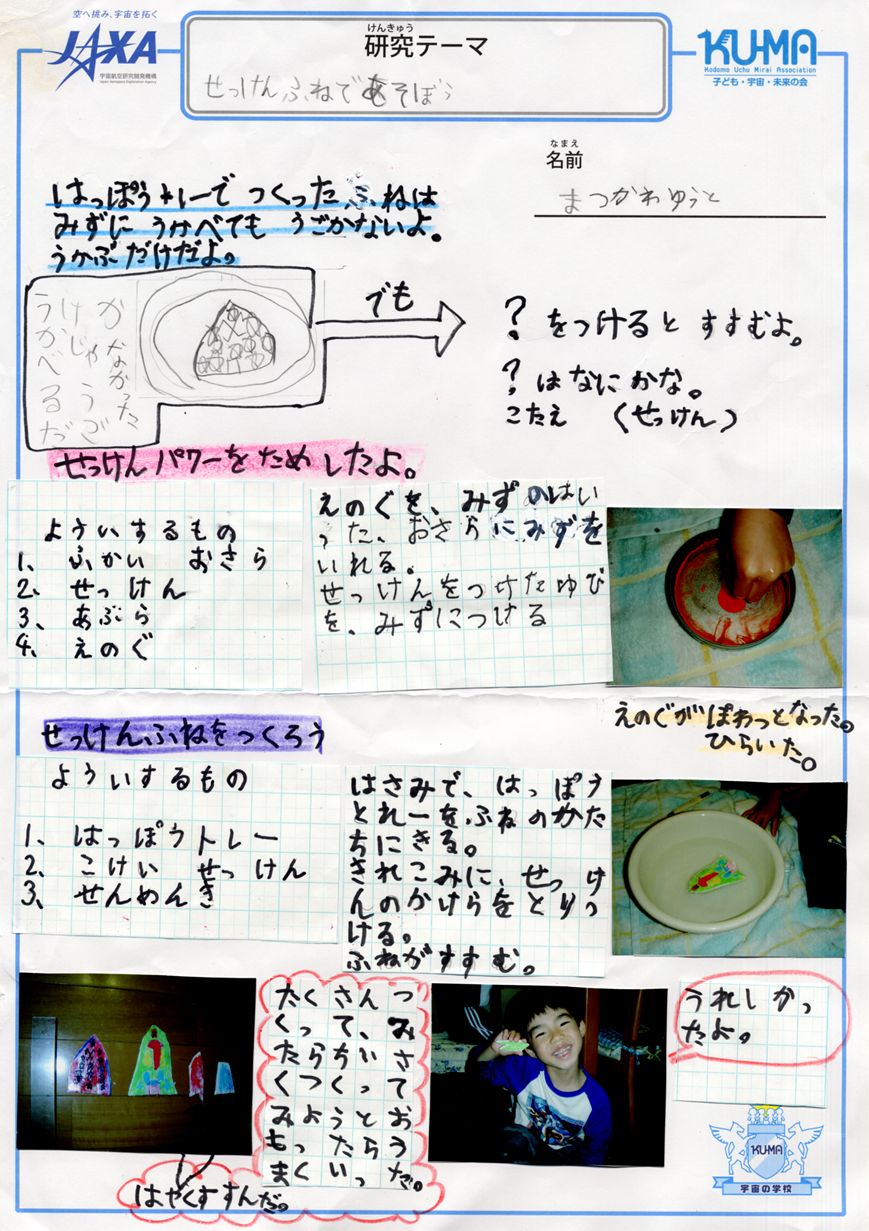 空へ挑み、宇宙を拓く
JAXA
宇宙航空研究開発機構
Japan Aerospace Exploration Agency
けんきゅう
研究テーマ
せっけんふねであそぼう
KU-MA
Kodomo Uchu Mirai Association
子ども・宇宙・未来の会
なまえ
名前
まつかわゆうと
はっぽうトレーで つくった ふねは
みずに うかべても うごかないよ。
うかぶだけだよ。
うかべるだ
けじゃうご
かなかった
でも
? をつけると すすむよ。
? は なにかな。
こたえ (せっけん)
せっけんパワーをためしたよ。
よういするもの
1、 ふかい おさら
2、 せっけん
3、 あぶら
4、 えのぐ
えのぐを、みずのはい
った、おさらにみずを
いれる。
せっけんをつけたゆび
を、みずにつける
えのぐがぽわっとなった。
ひらいた。
せっけんふねをつくろう
よういするもの
1、 はっぽうトレー
2、 こけい せっけん
3、 せんめんき
はさみで、はっぽう
とれーをふねのかた
ちにきる。
きれこみに、せっけ
んのかけらをとりつ
ける。
ふねがすすむ。
たくさんつ
くって、み
たらちいさ
くつくって
みようとお
もったらう
まくいった。
はやくすすんだ。
うれしかっ
たよ。
KU-MA
宇宙の学校